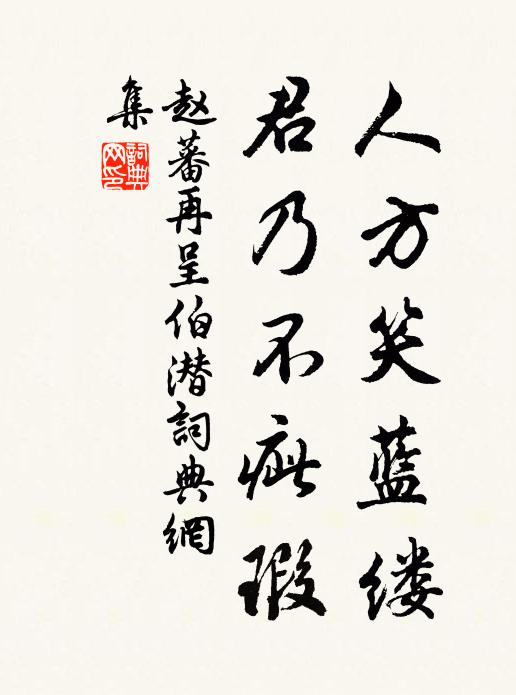 人方笑蓝缕
君乃不疵瑕
赵蕃再呈伯潜詞典網
集
詞典网印